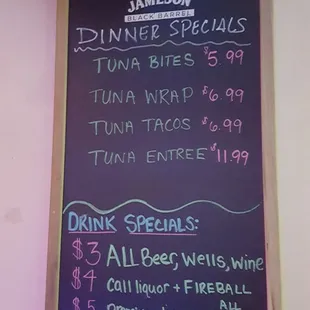 JAMESON
BLACK BARREL
DINNER SPECIALS
TUNA BITES $5.99
TUNA WRAP $6.99
TUNA TACOS $6.99
TUNA ENTREE $11.99
DRINK SPECIALS:
$3 ALL Beer, Wells, Wine
$4 Call liquor + FIREBALL
$5 ALL